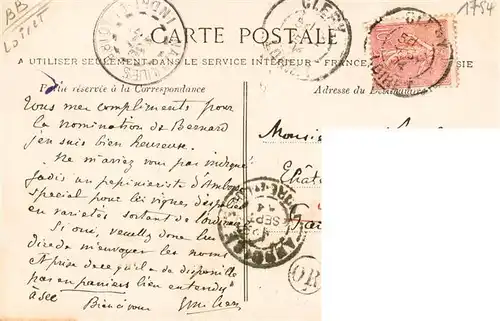 BB
Loiret
1754
CARTE POSTALE
A UTILISER SEULEMENT DANS LE SERVICE INTÉRIEUR - FRANCE,
Partie réservée à la Correspondance
Adresse du Destinataire
CLERY
CLERY
LOIRET
Tous mes compliments pour
la nomination de Bernard
j'en suis bien heureuse.
Ne m'aviez vous pas indiqué
jadis un pépinieriste d'Amboise
special pour les vignes d'espaliers
en varietés sortant de l'ordinaire
Si oui, veuillez donc lui
dire de m'envoyer les noms
& prix de ce qu'il a de disponible
pas en paniers bien entendu
à sec
Bien à vous
Monsieur
Chât
INDRE-ET-
SEPT
OR